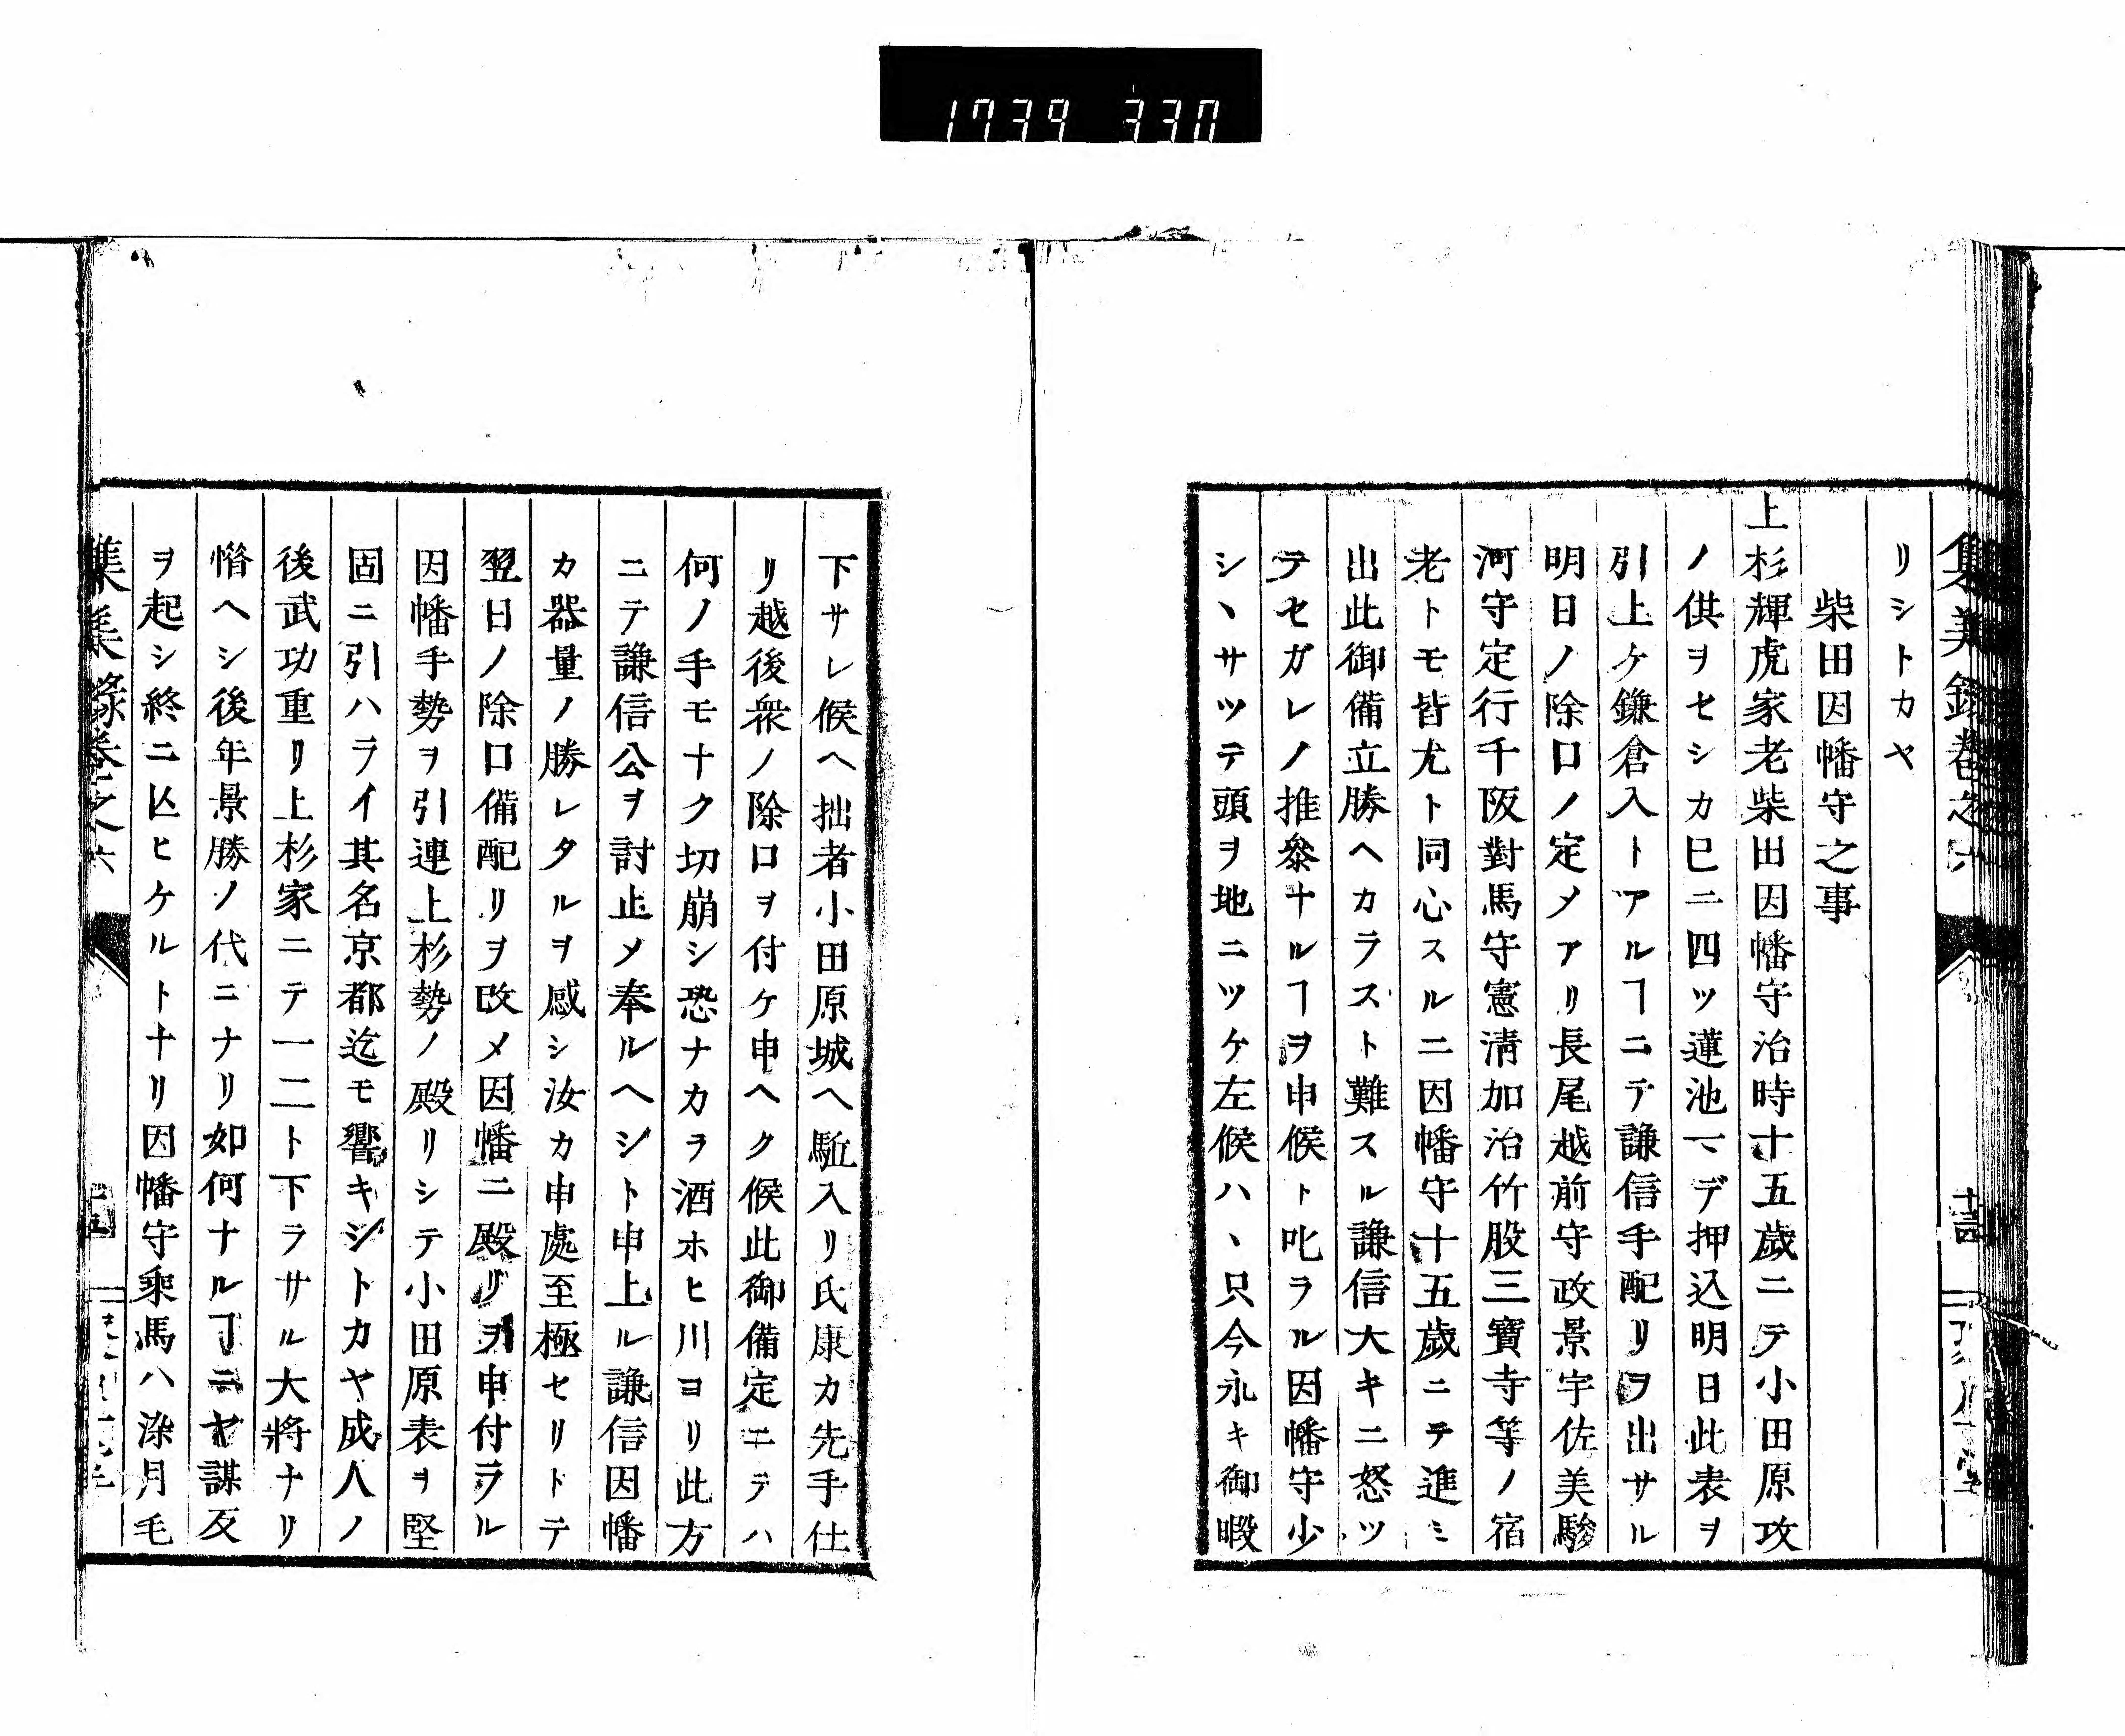 1739 330
集義錄卷之六
リシトカヤ
柴田因幡守之事
上杉輝虎家老柴田因幡守治時十五歲ニテ小田原攻
ノ供ヲセシカ巳ニ四ツ蓮池マデ押込明日此表ヲ
引上ケ鎌倉入トアルヿニテ謙信手配リヲ出サル
明日ノ除口ノ定メアリ長尾越前守政景宇佐美駿
河守定行千阪對馬守憲淸加治竹股三寶寺等ノ宿
老トモ皆尤ト同心スルニ因幡守十五歲ニテ進ミ
出此御備立勝ヘカラスト難スル謙信大キニ怒ツ
テセガレノ推參ナルヿヲ申候ト叱ラル因幡守少
シヽサツテ頭ヲ地ニツケ左候ハヽ只今永キ御暇
下サレ候ヘ拙者小田原城ヘ駈入リ氏康カ先手仕
リ越後衆ノ除口ヲ付ケ申ヘク候此御備定ニテハ
何ノ手モナク切崩シ恐ナカラ酒ホヒ川ヨリ此方
ニテ謙信公ヲ討止メ奉ルヘシト申上ル謙信因幡
カ器量ノ勝レタルヲ感シ汝カ申處至極セリトテ
翌日ノ除口備配リヲ改メ因幡ニ殿リヲ申付ラル
因幡手勢ヲ引連上杉勢ノ殿リシテ小田原表ヲ堅
固ニ引ハライ其名京都迄モ響キシトカヤ成人ノ
後武功重リ上杉家ニテ一二ト下ラサル大將ナリ
惰ヘシ後年景勝ノ代ニナリ如何ナルヿニヤ謀反
ヲ起シ終ニ亾ヒケルトナリ因幡守乘馬ハ染月毛